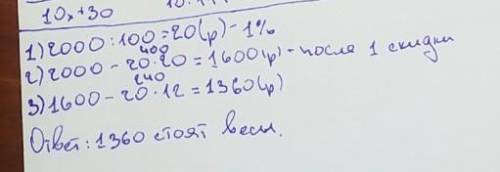 10x+30 10.
1) 2000 : 100 = 20 (р) - 1%
400
2) 2000 - 20 · 20 = 1600 (р) - после 1 скидки
240
3) 1600 - 20 · 12 = 1360 (р)
Ответ: 1360 стоят весы.